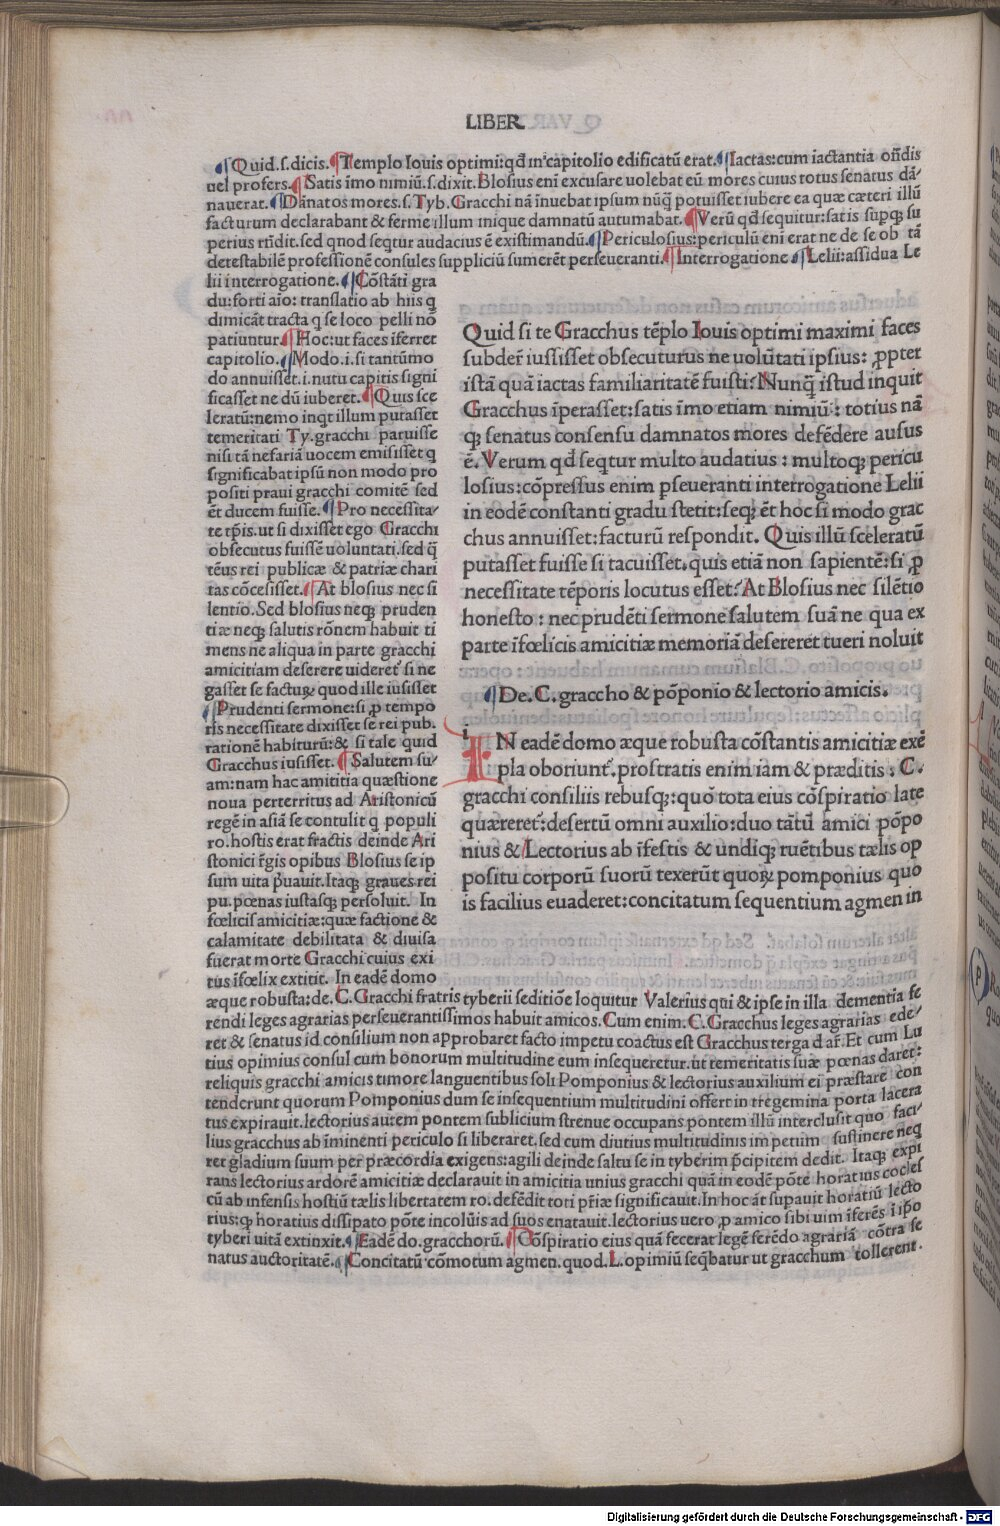 LIBER
¶Quid.s.dicis.¶Templo Iouis optimi:qđ in capitolio edificatū erat.¶Iactas:cum iactantia oñdis
uel profers.¶Satis īmo nimiū.s.dixit.Blosius eni excusare uolebat eū mores cuius totus senatus dā
nauerat.¶Dānatos mores.s.Tyb.Gracchi nā īnuebat ipsum nūq̄ potuisset iubere ea quæ cæteri illū
facturum declarabant & ferme illum inique damnatū autumabat.¶Verū qđ sequitur:satis supq; su
perius rñdit.sed quod seqtur audacius ē existimandū.¶Periculosius:periculū eni erat ne de se ob tā
detestabilē professionē consules suppliciū sumerēt perseueranti.¶Interrogatione ¶Lelii:assidua Le
lii interrogatione.¶Cōstāti gra
du:forti aio:translatio ab hiis q
dimicāt tracta q se loco pelli nō
patiuntur.¶Hoc:ut faces īferret
capitolio.¶Modo.i.si tantūmo
do annuisset.i.nutu capitis signi
ficasset ne dū iuberet.¶Quis sce
leratū:nemo inqt illum putasset
temeritati Ty.gracchi paruisse
nisi tā nefariā uocem emisisset q
significabat ipsū non modo pro
positi praui gracchi comitē sed
ēt ducem fuisse.¶Pro necessita/
te tp̄is.ut si dixisset ego Gracchi
obsecutus fuissē uoluntati.sed q̄
tēus rei publicæ & patriæ chari
tas cōcesisset.¶At blosius nec si
lentio.Sed blosius neq; pruden
tiæ neq; salutis rōnem habuit ti
mens ne aliqua in parte gracchi
amicitiam deserere uideret̄ si ne
gasset se facturꝝ quod ille iusisset
¶Prudenti sermone:si ꝓ tempo
ris necessitate dixisset se rei pub.
rationē habiturū:& si tale quid
Gracchus iusisset.¶Salutem su/
am:nam hac amititia quæstione
noua perterritus ad Aristonicū
regē in asiā se contulit q populi
ro.hostis erat fractis deinde Ari
stonici r̄gis opibus Blosius se ip
sum uita p̄uauit.Itaq; graues rei
pu.pœnas iustasq; persoluit. In
fœlicis amicitiæ:quæ factione &
calamitate debilitata & diuisa
fuerat morte Gracchi cuius exi
tus īfœlix extitit. In eadē domo
æque robusta:de.C.Gracchi fratris tyberii seditiōe loquitur Valerius qui & ipse in illa dementia fe
rendi leges agrarias perseuerantissimos habuit amicos.Cum enim.C.Gracchus leges agrarias ede/
ret & senatus id consilium non approbaret facto impetu coactus est Gracchus terga dar̄.Et cum Lu
tius opimius consul cum bonorum multitudine eum insequeretur.ut temeritatis suæ pœnas daret:
reliquis gracchi amicis timore languentibus soli Pomponius & lectorius auxilium ei præstare con
tenderunt quorum Pomponius dum se insequentium multitudini offert in tregemina porta lacera
tus expirauit.lectorius autem pontem sublicium strenue occupans pontem illū interclusit quo faci/
lius gracchus ab īminenti periculo si liberaret.sed cum diutius multitudinis impetum sustinere neq
ret gladium suum per præcordia exigens:agili deinde saltu se in tyberim p̄cipitem dedit. Itaq; expi
rans lectorius ardorē amicitiæ declarauit in amicitia unius gracchi quā in eodē pōte horatius cocles
cū ab infensis hostiū tælis libertatem ro.defēdit toti p̄riæ significauit.In hoc āt supauit horatiū lecto
rius:q; horatius dissipato pōte incolūis ad suos enatauit.lectorius uero ꝓ amico sibi uim īferēs ī ip̄o
tyberi uitā extinxit.¶Eadē do.gracchorū.¶Cōspiratio eius quā fecerat legē ferēdo agrariā cōtra se
natus auctoritatē.¶Concitatū cōmotum agmen.quod.L.opimiū seq̄batur ut gracchum tollerent.
Quid si te Gracchus tēplo Iouis optimi maximi faces
subder̄ iussisset obsecuturus ne uolūtati ipsius: ꝓpter
istā quā iactas familiaritatē fuisti?Nunq̄ istud inquit
Gracchus īperasset:satis īmo etiam nimiū: totius nā
q; senatus consensu damnatos mores defēdere ausus
ē.Verum qđ seqtur multo audatius: multoq; pericu
losius:cōpressus enim ꝑseueranti interrogatione Lelii
in eodē constanti gradu stetit:seq; ēt hoc si modo grac
chus annuisset:facturū respondit. Quis illū sceleratū
putasset fuisse si tacuisset.quis etiā non sapientē:si ꝓ
necessitate tēporis locutus esset?At Blosius nec silētio
honesto: nec prudēti sermone salutem suā ne qua ex
parte īfœlicis amicitiæ memoriā desereret tueri noluit
¶De.C.graccho & pōponio & lectorio amicis.
i
IN eadē domo æque robusta cōstantis amicitiæ exē
pla oboriunt̄.prostratis enim iam & præditis: C.
gracchi consiliis rebusq;:quō tota eius cōspiratio late
quæreret̄:desertū omni auxilio:duo tātū amici pōpo
nius & Lectorius ab īfestis & undiq; ruētibus tælis op
positu corporū suorū texerūt quorꝝ pomponius quo
is facilius euaderet:concitatum sequentium agmen in
P
Digitalisierung gefördert durch die Deutsche Forschungsgemeinschaft - DFG